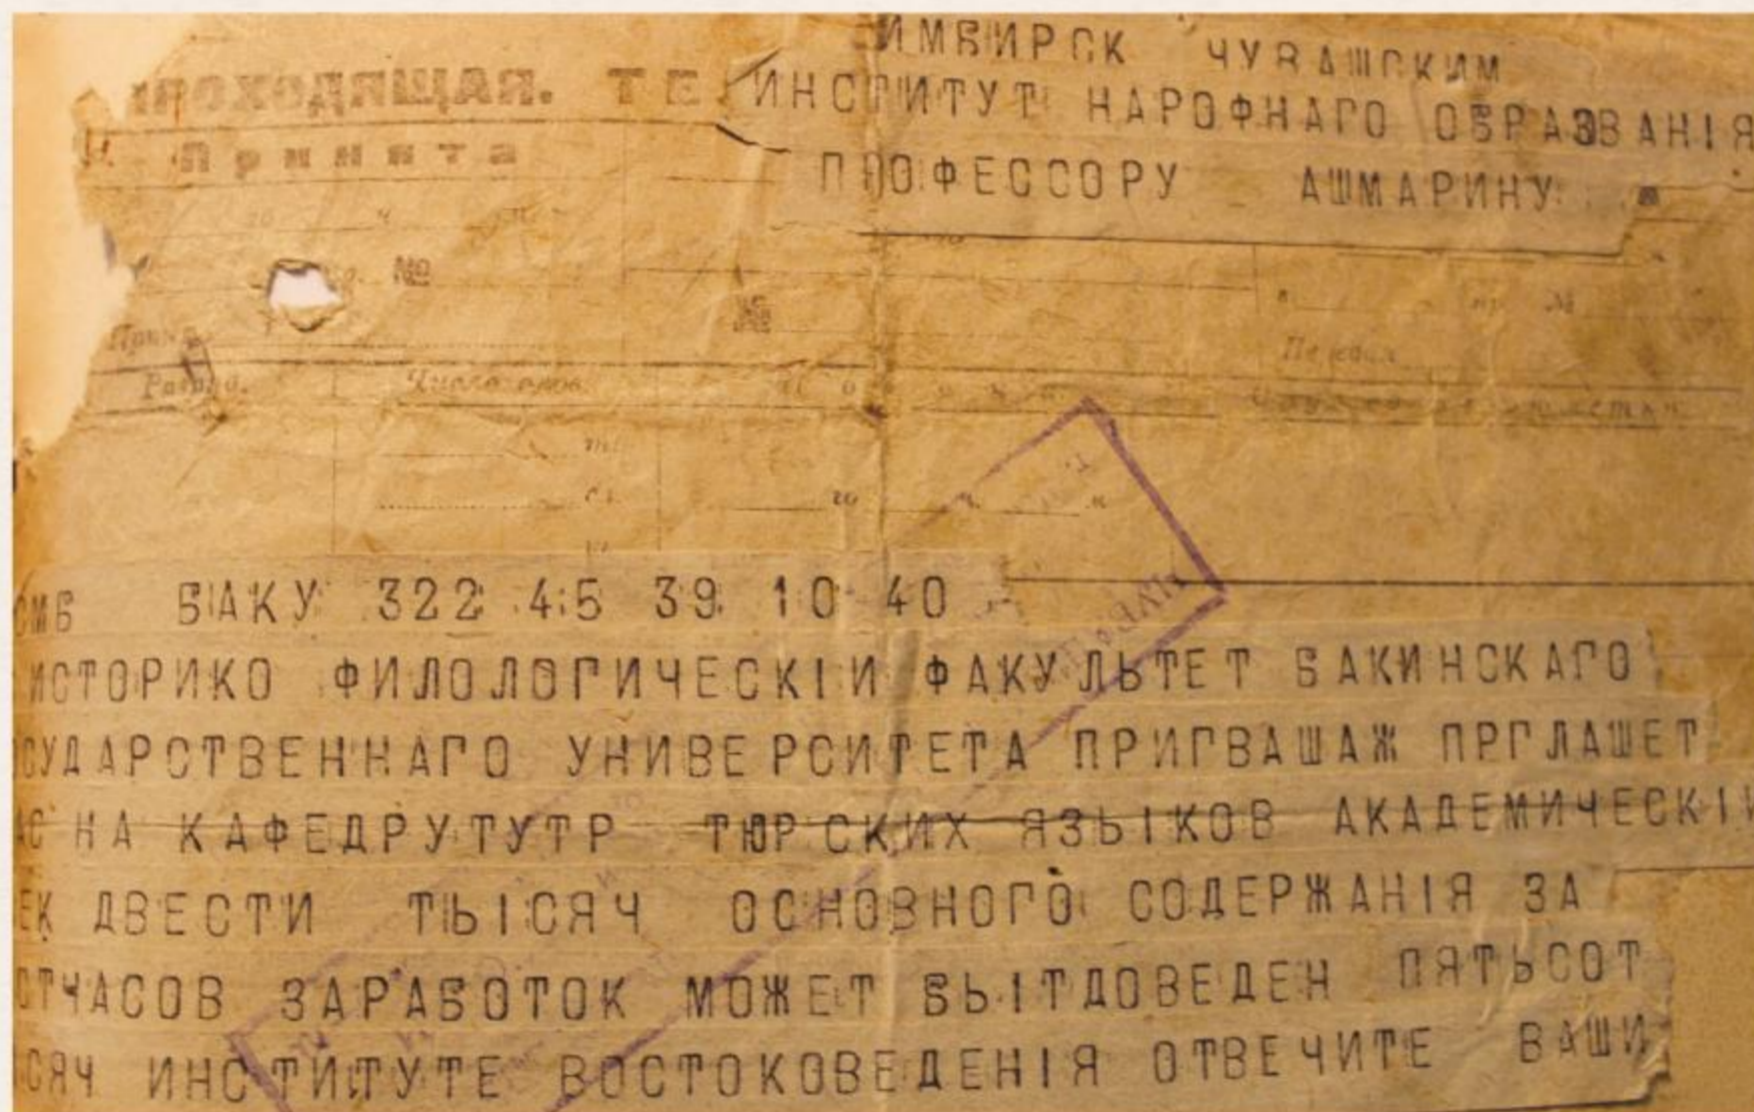 ИМБИРСК ЧУВАШСКИМ
РОХОДЯЩАЯ. ТЕ ИНСТИТУТ НАРОФНАГО ОБРАЗВАНІЯ
Принята
ПРОФЕССОРУ АШМАРИНУ
го ч. м.
№
Принял
Передал
Разряд. Число слов.
СМБ БАКУ 322 45 39 10 40
ИСТОРИКО ФИЛОЛОГИЧЕСКІИ ФАКУЛЬТЕТ БАКИНСКАГО
ОСУДАРСТВЕННАГО УНИВЕРСИТЕТА ПРИГВАШАЖ ПРГЛАШЕТ
АС НА КАФЕДРУТУТР ТЮРСКИХ ЯЗЫКОВ АКАДЕМИЧЕСКІИ
ЕК ДВЕСТИ ТЫСЯЧ ОСНОВНОГО СОДЕРЖАНІЯ ЗА
СТЧАСОВ ЗАРАБОТОК МОЖЕТ БЫТДОВЕДЕН ПЯТЬСОТ
СЯЧ ИНСТИТУТЕ ВОСТОКОВЕДЕНІЯ ОТВЕЧИТЕ ВАШИ